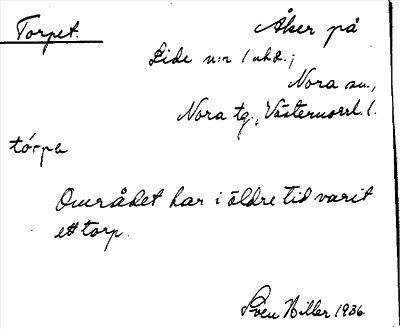 Torpet.
Åker på
Lide n:r 1 uhd.;
Nora sn.,
Nora tg., Västernorrl. l.
tórpe
Området har i äldre tid varit
ett torp.
Sven Hiller 1936